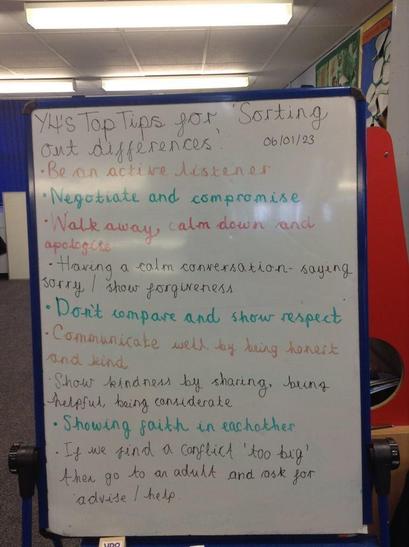 Y4's Top Tips for 'Sorting
out differences'
06/01/23
• Be an active listener
• Negotiate and compromise
• Walk away, calm down and
apologise
• Having a calm conversation - saying
sorry / show forgiveness
• Don't compare and show respect
• Communicate well by being honest
and kind
• Show kindness by sharing, being
helpful, being considerate
• Showing faith in eachother
• If we find a conflict 'too big'
then go to an adult and ask for
advise / help.